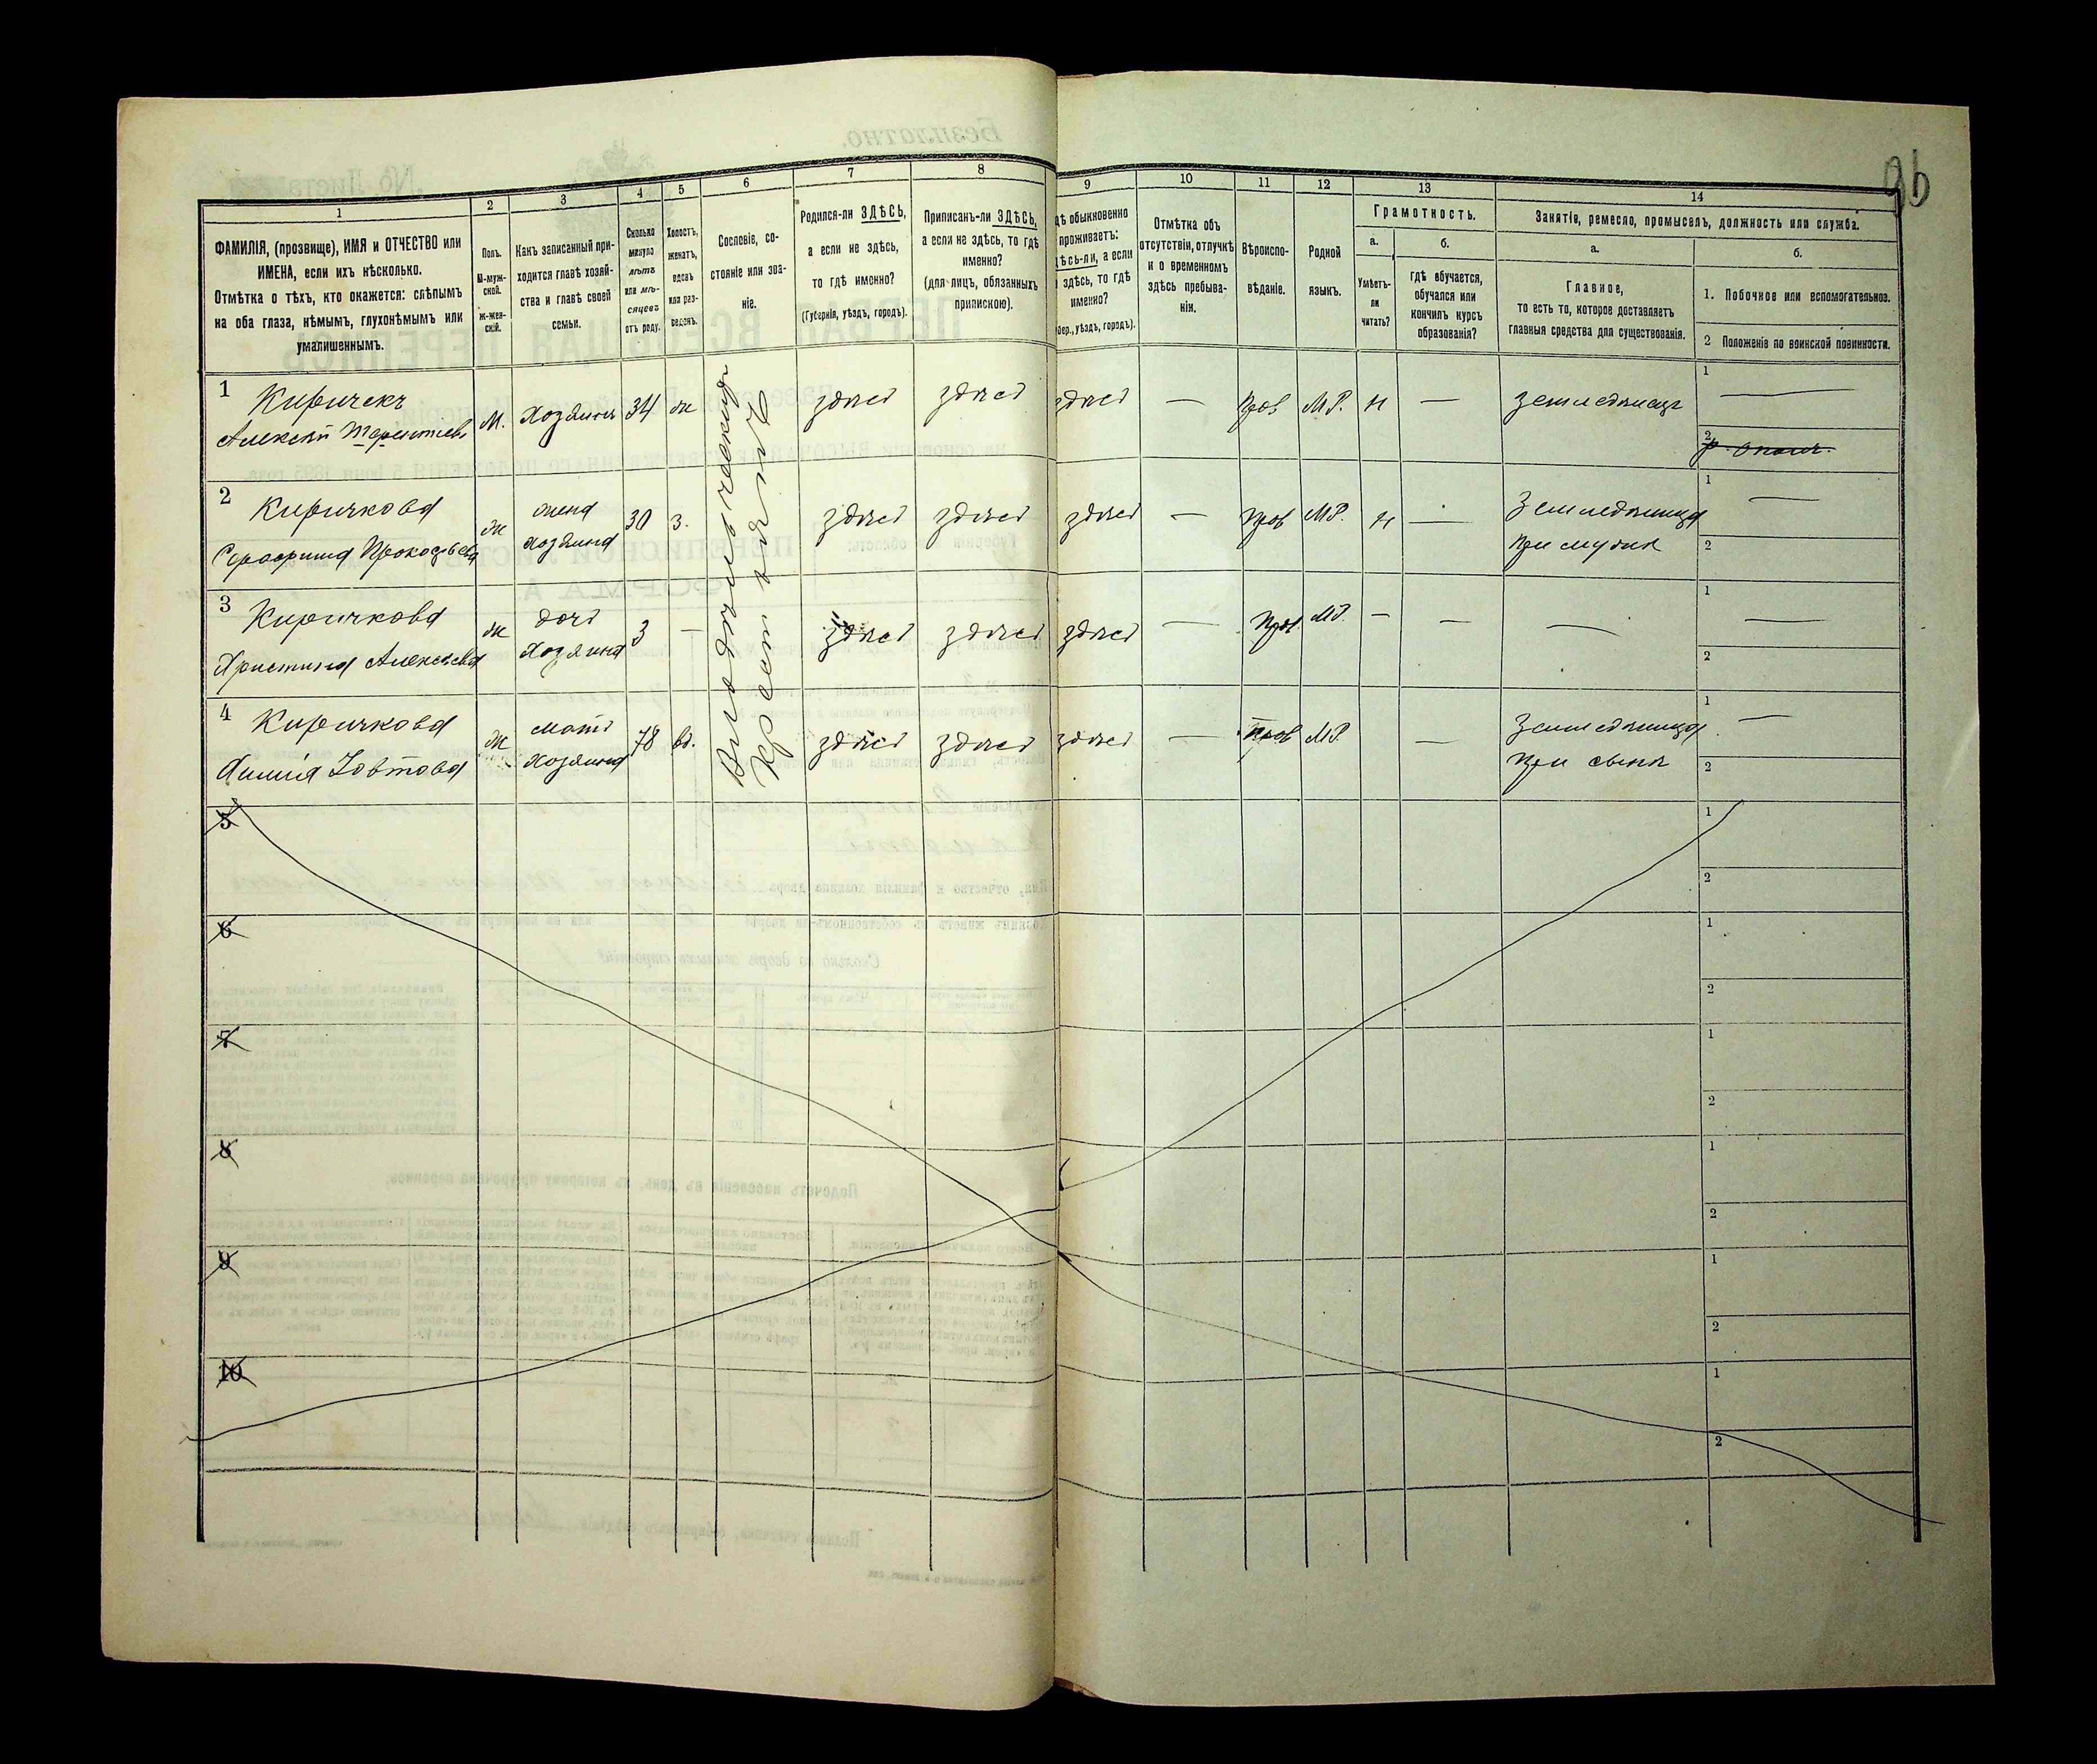 96
1 2 3 4 5 6 7 8 9 10 11 12 13 14
ФАМИЛІЯ, (прозвище), ИМЯ и ОТЧЕСТВО или
ИМЕНА, если ихъ нѣсколько.
Отмѣтка о тѣхъ, кто окажется: слѣпымъ
на оба глаза, нѣмымъ, глухонѣмымъ или
умалишеннымъ.
Полъ.
М-муж-
ской.
Ж-жен-
скій.
Какъ записанный при-
ходится главѣ хозяй-
ства и главѣ своей
семьи.
Сколько
минуло
лѣтъ
или мѣ-
сяцевъ
отъ роду.
Холостъ,
женатъ,
вдовъ
или раз-
веденъ.
Сословіе, со-
стояніе или зва-
ніе.
Родился-ли ЗДѢСЬ,
а если не здѣсь,
то гдѣ именно?
(Губернія, уѣздъ, городъ).
Приписанъ-ли ЗДѢСЬ,
а если не здѣсь, то гдѣ
именно?
(для лицъ, обязанныхъ
припискою).
обыкновенно
проживаетъ:
а если
здѣсь, то гдѣ
именно?
уѣздъ, городъ).
Отмѣтка объ
отсутствіи, отлучкѣ
и о временномъ
здѣсь пребыва-
ніи.
Вѣроиспо-
вѣданіе.
Родной
языкъ.
Грамотность.
а. б.
Умѣетъ-
ли
читать?
гдѣ обучается,
обучался или
кончилъ курсъ
образованія?
Занятіе, ремесло, промыселъ, должность или служба.
а. б.
Главное,
то есть то, которое доставляетъ
главныя средства для существованія.
1. Побочное или вспомогательное.
2 Положеніе по воинской повинности.
1 Киричекъ
Алексѣй Терентіевъ
М. Хозяинъ 34 ж здѣсь здѣсь здѣсь — Прав М.Р. н — Земледѣлецъ
1 —
2 р. ополч.
2 Киричкова
Серафима Прокофьева
ж жена
хозяина
30 з. здѣсь здѣсь здѣсь — Прав М.Р. н — Земледѣлица
при мужѣ
1 —
2
3 Киричкова
Христина Алексѣева
ж дочь
Хозяина
3 — здѣсь здѣсь здѣсь — Прав. М.Р. — — —
1 —
2
4 Киричкова
Зовтова
ж мать
хозяина
78 вд. здѣсь здѣсь здѣсь — Прав М.Р. — Земледѣлица
при сынѣ
1 —
2
Крест
5
1
2
6
1
2
7
1
2
8
1
2
9
1
2
10
1
2